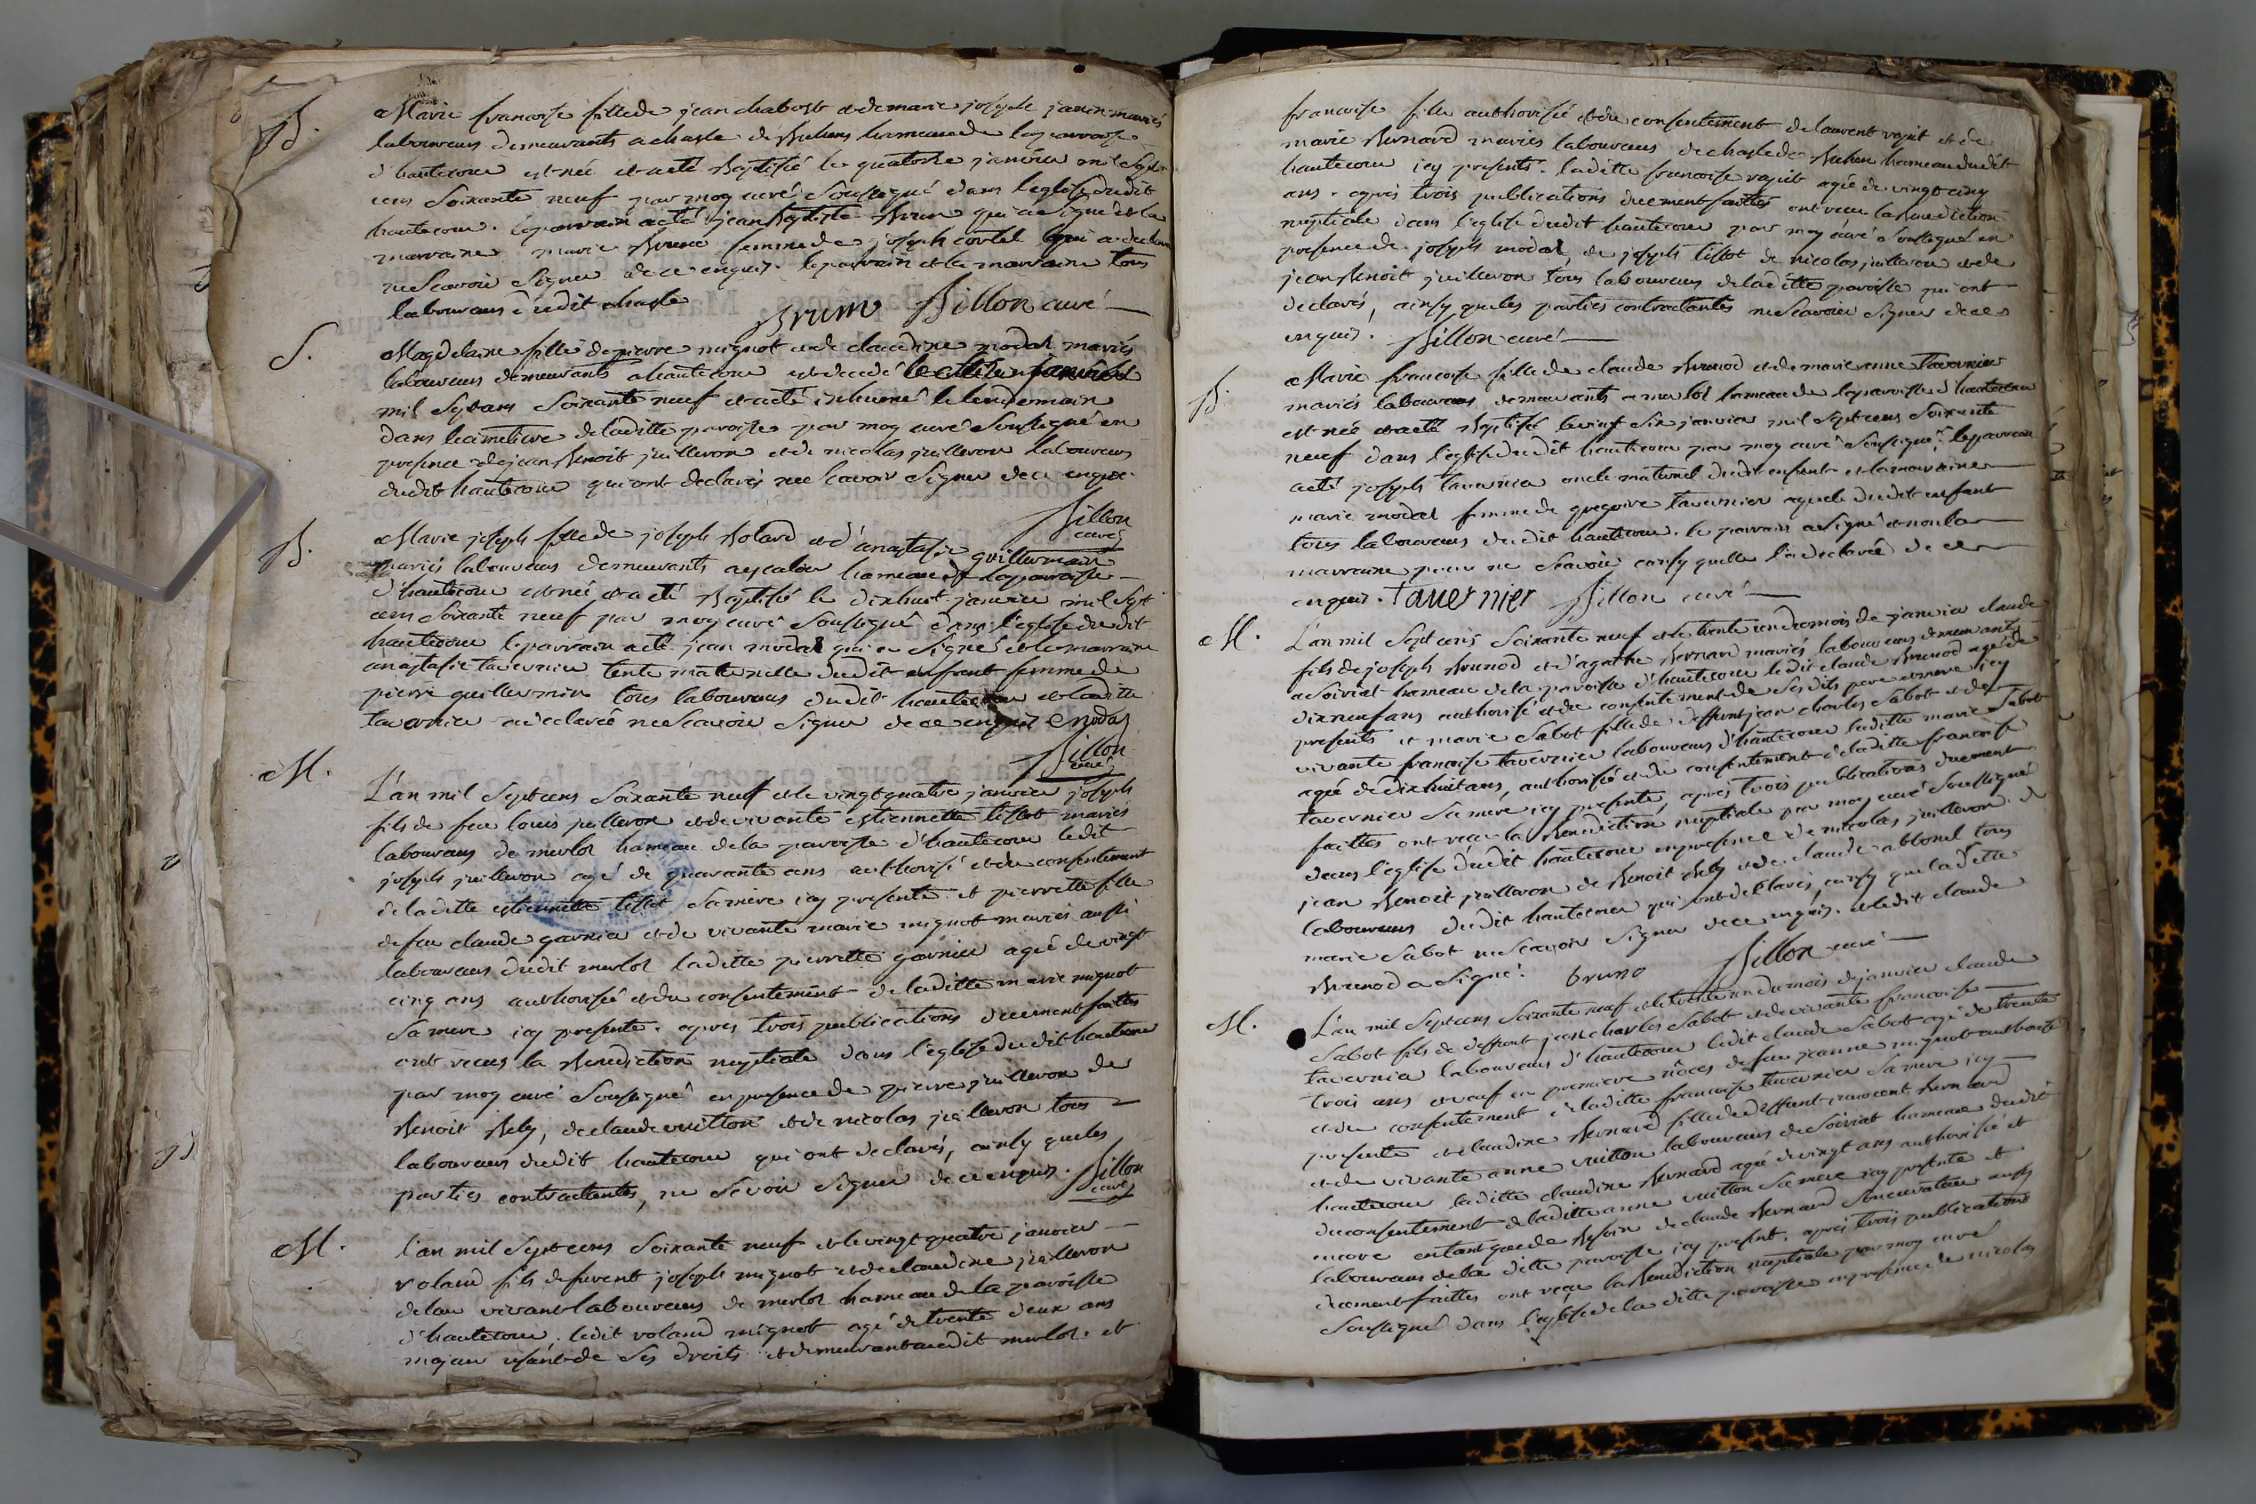 B.
Marie francoise fille de jean chabost et de marie joseph janin mariés
laboureurs demeurants a chasle de Buhens hameau de la parroisse
d'hautecour est née et a eté Baptisé le quatorze janvier mil sept
cens soixante neuf par moy curé soussigné dans l'eglise dudit
hautecour. le parrain a eté jean Baptiste Brun qui a signé et la
marraine marie Brun femme de joseph cortel qui a declaré
ne scavoir signer de ce enquis. le parrain et la marraine tous
laboureurs dudit chasle
Brum Billon curé
S.
Magdelaine fille de pierre mignot et de claudine modas mariés
laboureurs demeurants a hautecour est decedé le janvier
mil sept cens soixante neuf et a eté inhumé le lendemain
dans le cimetiere de laditte paroisse par moy curé soussigné en
presence de jean Benoit juilleron et de nicolas juilleron laboureurs
dudit hautecour qui ont declarés ne scavoir signer de ce enquis.
Billon
curé
B.
Marie joseph fille de joseph Bolard et d'anastasie guillermin
mariés laboureurs demeurants a hameau de la parroisse
d'hautecour est née et a eté Baptisé le dixhuit janvier mil sept
cens soixante neuf par moy curé soussigné dans l'eglise dudit
hautecour le parrain a eté jean modas qui a signé et la marraine
anastasie tavernier tente maternelle dudit enfant femme de
pierre guillermin tous laboureurs dudit hautecour et laditte
tavernier a declaré ne scavoir signer de ce enquis Modas
Billon
curé
M.
L'an mil sept cens soixante neuf et le vingt quatre janvier joseph
fils de feu louis juilleron et de vivante estiennette tissot mariés
laboureurs de merlos hameau de la paroisse d'hautecour ledit
joseph juilleron agé de quarante ans authorisé et du consentement
de laditte estiennette tissot sa mere icy presente et pierrette fille
de feu claude garnier et de vivante marie mignot mariés aussi
laboureurs dudit merlos laditte pierrette garnier agée de vingt
cinq ans authorisée et du consentement de laditte marie mignot
sa mere icy presente. apres trois publications duement faittes
ont recus la Benediction nuptiale dans l'eglise dudit hautecour
par moy curé soussigné en presence de pierre juilleron de
Benoit Bely, de claude vuitton et de nicolas juilleron tous
laboureurs dudit hautecour qui ont declarés, ainsy que les
parties contractantes, ne scavoir signer de ce enquis. Billon
curé
M.
L'an mil sept cens soixante neuf et le vingt quatre janvier
roland fils de furent joseph mignot et de claudine juilleron
de leur vivant laboureurs de merlos hameau de la paroisse
d'hautecour. ledit roland mignot agé de trente deux ans
majeur usant de ses droits et demeurant audit merlos. et
francoise fille authorisée et du consentement de laurent vojut et de
marie Bernard mariés laboureurs de chasle de Buhens hameau dudit
hautecour icy presents. laditte francoise vojut agée de vingt cinq
ans. apres trois publications duement faittes ont receu la Benediction
nuptiale dans l'eglise dudit hautecour par moy curé soussigné en
presence de joseph modas, de joseph tissot de nicolas juilleron et de
jean Benoit juilleron tous laboureurs de laditte paroisse qui ont
declarés, ainsy que les parties contractantes ne scavoir signer de ce
enquis. Billon curé
B.
Marie francoise fille de claude Brunod et de marie anne tavernier
mariés laboureurs demeurants a merlos hameau de la paroisse d'hautecour
est née et a eté Baptisé le vingt six janvier mil sept cens soixante
neuf dans l'eglise dudit hautecour par moy curé soussigné. le parrain
a eté joseph tavernier oncle maternel dudit enfant et la marraine
marie modas femme de gregoire tavernier ayeule dudit enfant
tous laboureurs dudit hautecour. le parrain a signé et non la
marraine pour ne scavoir ainsy quelle l'a declarée de ce
enquis. tavernier Billon curé
M.
L'an mil sept cens soixante neuf et le trente un du mois de janvier claude
fils de joseph Brunod et d'agathe Bernard mariés laboureurs demeurants
a soiriat hameau de la paroisse d'hautecour ledit claude Brunod agé de
dixneuf ans authorisé et du consentement de ses dits pere et mere icy
presents et marie sabot fille de deffunt jean charles sabot et de
vivante francoise tavernier laboureurs d'hautecour laditte marie sabot
agée de dixhuit ans, authorisée et du consentement de laditte francoise
tavernier sa mere icy presente, apres trois publications duement
faittes ont receu la Benediction nuptiale par moy curé soussigné
dans l'eglise dudit hautecour en presence de nicolas juilleron de
jean Benoit juilleron de Benoit Bely et de claude abbonel tous
laboureurs dudit hautecour qui ont declarés, ainsy que laditte
marie sabot ne scavoir signer de ce enquis. et ledit claude
Brunod a signé. bruno Billon curé
M.
L'an mil sept cens soixante neuf et le trente un du mois de janvier claude
sabot fils de deffunt jean charles sabot et de vivante francoise
tavernier laboureurs d'hautecour ledit claude sabot agé de trente
trois ans veuf en premiere nôces de feu jeanne mignot authorisé
et du consentement de laditte francoise tavernier sa mere icy
presente et claudine Bernard fille de deffunt innocent Bernard
et de vivante anne vuitton laboureurs de soiriat hameau dudit
hautecour laditte claudine Bernard agée de vingt ans authorisée et
du consentement de laditte anne vuitton sa mere icy presente et
encore entant que de Besoin de claude Bernard son curateur aussy
laboureurs de la ditte paroisse icy present. apres trois publications
duement faittes ont reçu la Benediction nuptiale par moy curé
soussigné dans l'eglise de la ditte paroisse en presence de nicolas